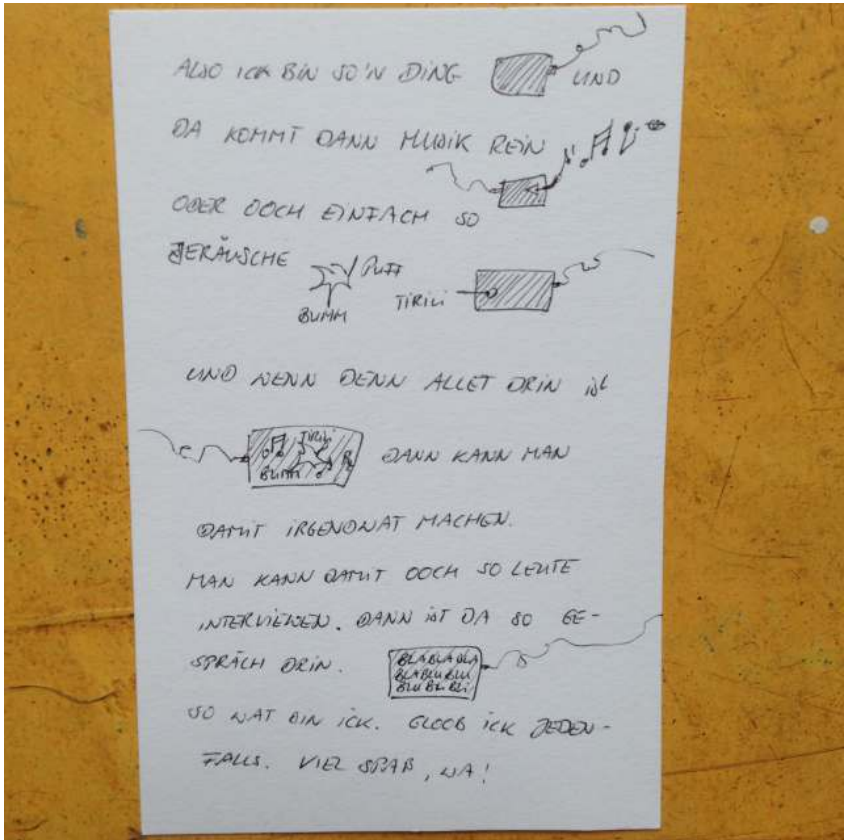 ALSO ICK BIN SO'N DING UND
DA KOMMT DANN MUSIK REIN
ODER OOCH EINFACH SO
JERÄUSCHE
PUFF
BUMM
TIRILI
UND WENN DENN ALLET DRIN ist
TIRILI
BUMM
DANN KANN MAN
DAMIT IRGENDWAT MACHEN.
MAN KANN DAMIT OOCH SO LEUTE
INTERVIEWEN. DANN iST DA SO GE-
SPRÄCH DRIN.
BLABLABLA
BLABLUBLU
BLUBLIBLI
SO WAT BIN ICK. GLOOB ICK JEDEN-
FALLS. VIEL SPAß, WA!